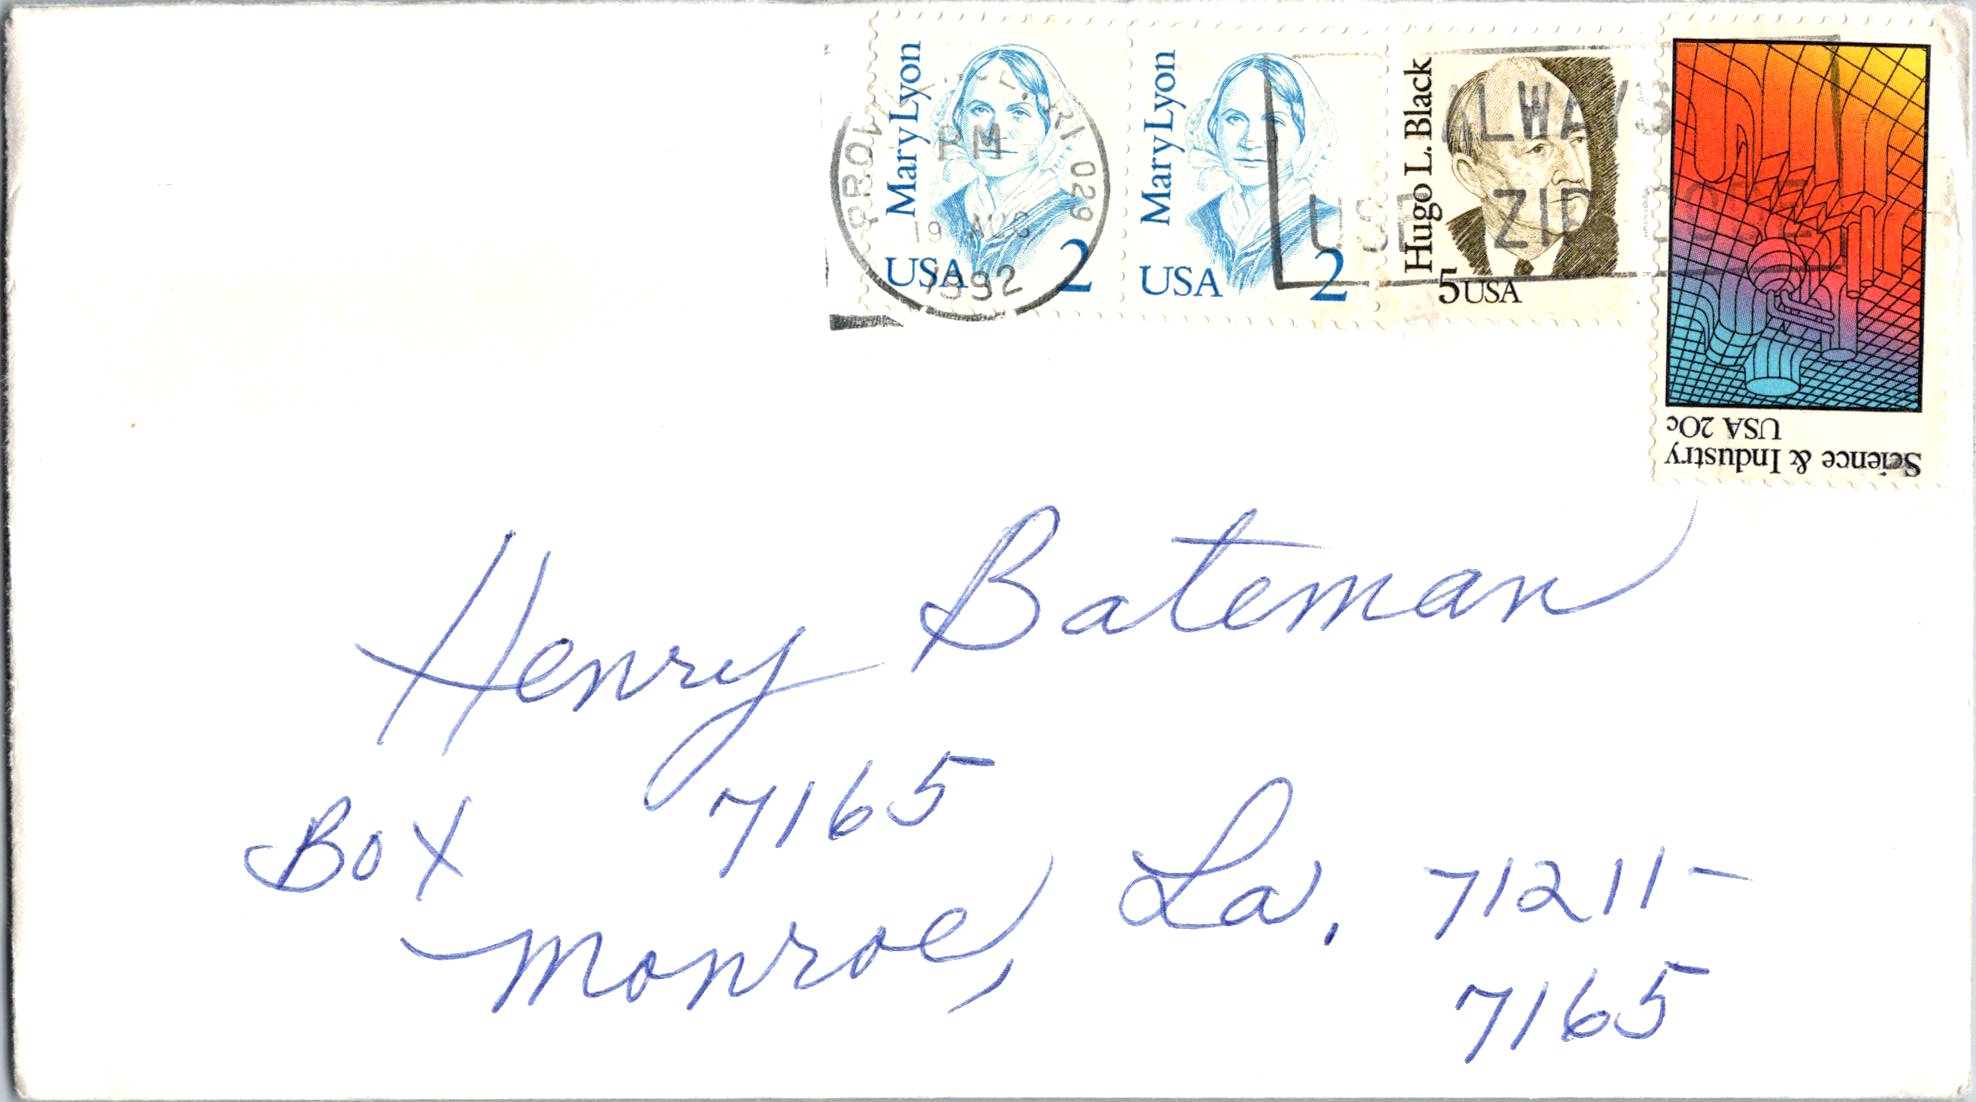 Mary Lyon
USA 2
Mary Lyon
USA 2
Hugo L. Black
5 USA
Science & Industry
USA 20c
RI 029
PM
19 AUG
1992
ALWAYS
USE ZIP
Henry Bateman
Box 7165
Monroe, La. 71211-
7165